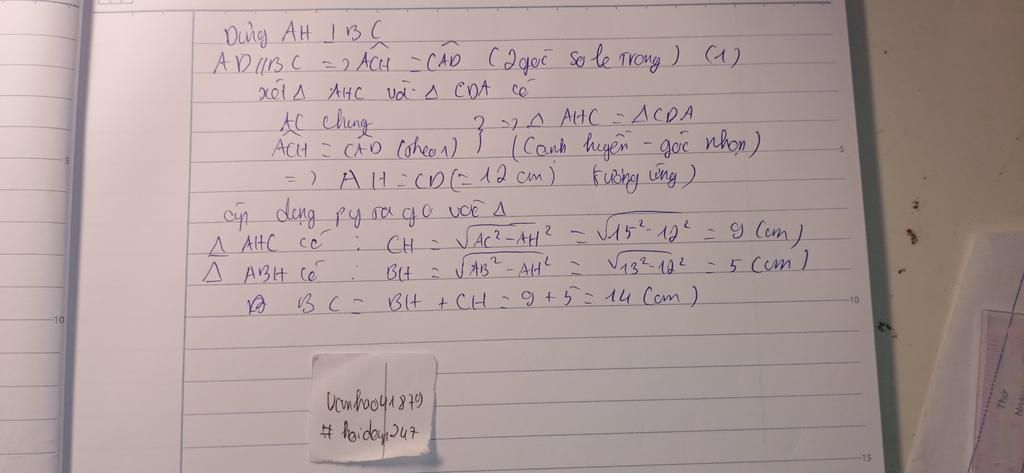 Dựng AH ⊥ BC
AD//BC => ACH = CAD (2 góc so le trong) (1)
xét Δ AHC và Δ CDA có
AC chung } => Δ AHC = Δ CDA
ACH = CAD (theo 1) } (Cạnh huyền - góc nhọn)
=> AH = CD (= 12 cm) (tương ứng)
áp dụng py ta go với Δ
Δ AHC có : CH = √AC² - AH² = √15² - 12² = 9 (cm)
Δ ABH có : BH = √AB² - AH² = √13² - 12² = 5 (cm)
BC = BH + CH = 9 + 5 = 14 (cm)
vanhao41879
# hoidap247
5
10
5
10
15
Thứ